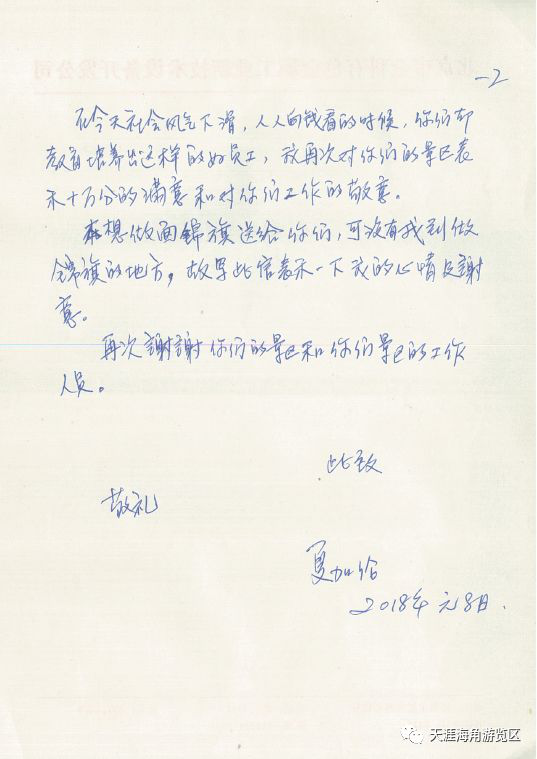 -2
在今天社会风气下滑,人人向钱看的时候,你们却
教育培养出这样的好员工,我再次对你们的景区表
示十万分的满意和对你们工作的敬意。
本想做面錦旗送给你们,可没有找到做
錦旗的地方,故写此信表示一下我的心情及謝
意。
再次謝謝你们的景区和你们景区的工作
人员。
此致
敬礼
夏加给
2018年元8日.
天涯海角游览区